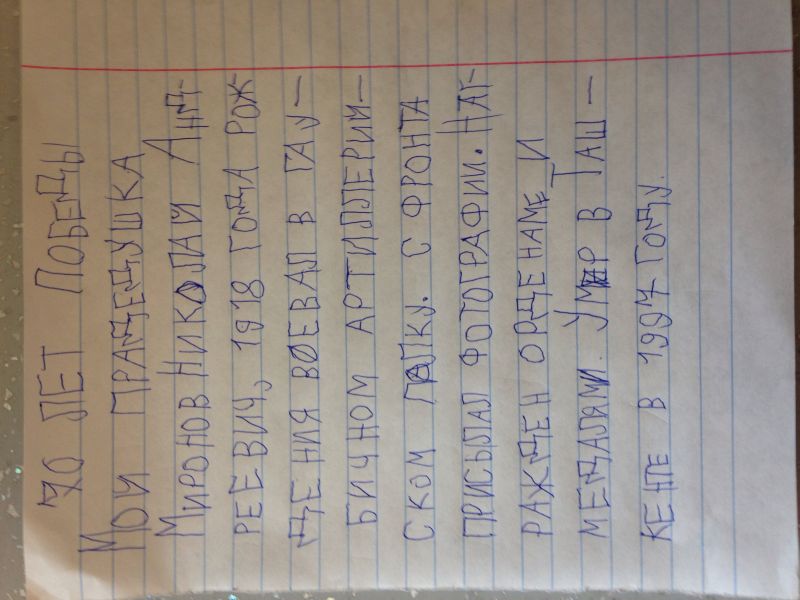 70 ЛЕТ ПОБЕДЫ
МОЙ ПРАДЕДУШКА
МИРОНОВ НИКОЛАЙ АНД-
РЕЕВИЧ, 1918 ГОДА РОЖ-
ДЕНИЯ ВОЕВАЛ В ГАУ-
БИЧНОМ АРТИЛЛЕРИЙ-
СКОМ ПОЛКУ. С ФРОНТА
ПРИСЫЛАЛ ФОТОГРАФИИ. НАГ-
РАЖДЕН ОРДЕНАМЕ И
МЕДАЛЯМИ. УМЕР В ТАШ-
КЕНТЕ В 1997 ГОДУ.